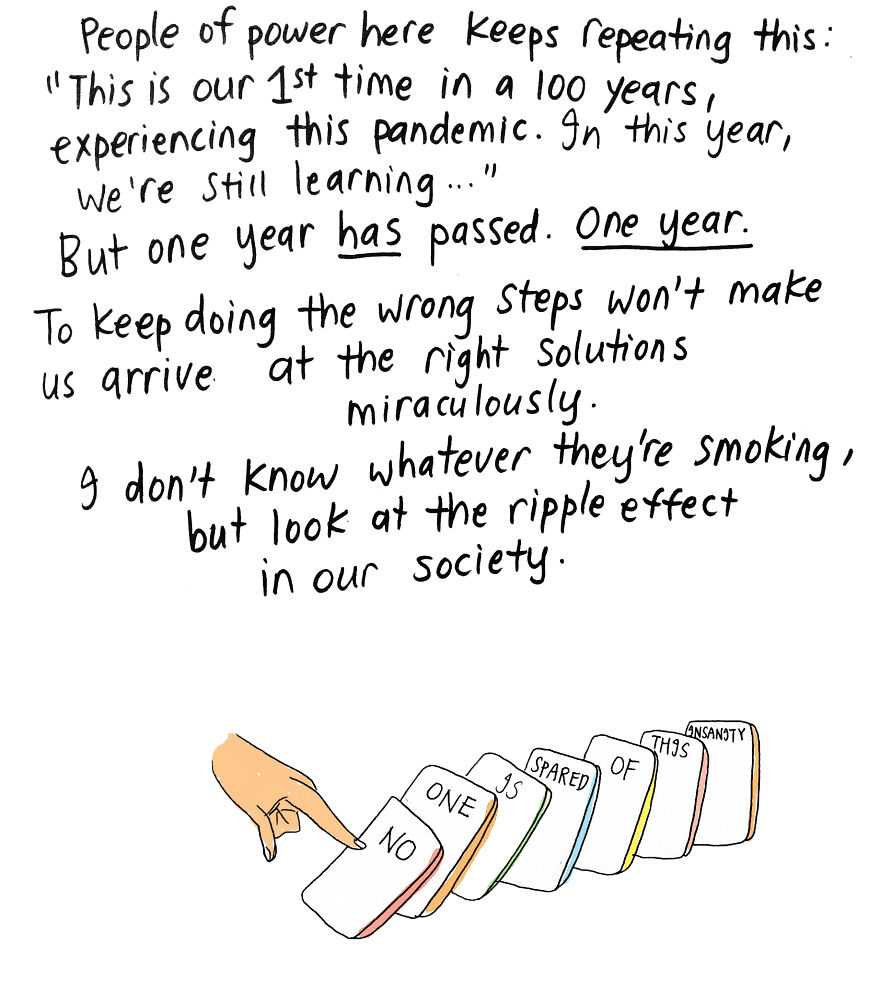 People of power here keeps repeating this:
"This is our 1st time in a 100 years,
experiencing this pandemic. In this year,
we're still learning..."
But one year has passed. One year.
To keep doing the wrong steps won't make
us arrive at the right solutions
miraculously.
I don't know whatever they're smoking,
but look at the ripple effect
in our society.
NO
ONE
IS
SPARED
OF
THIS
INSANITY